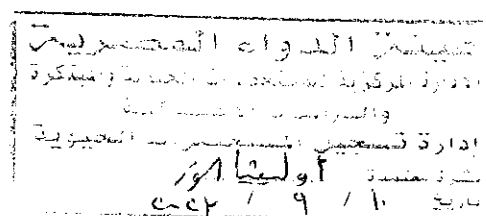 هيئة الدواء المصرية
الادارة المركزية للمستحضرات الحيوية والمبتكرة
والدراسات الاكلينيكية
إدارة تسجيل المستحضرات الحيوية
نشرة معتمدة
تاريخ ١٠ / ٩ / ٢٠٢٣